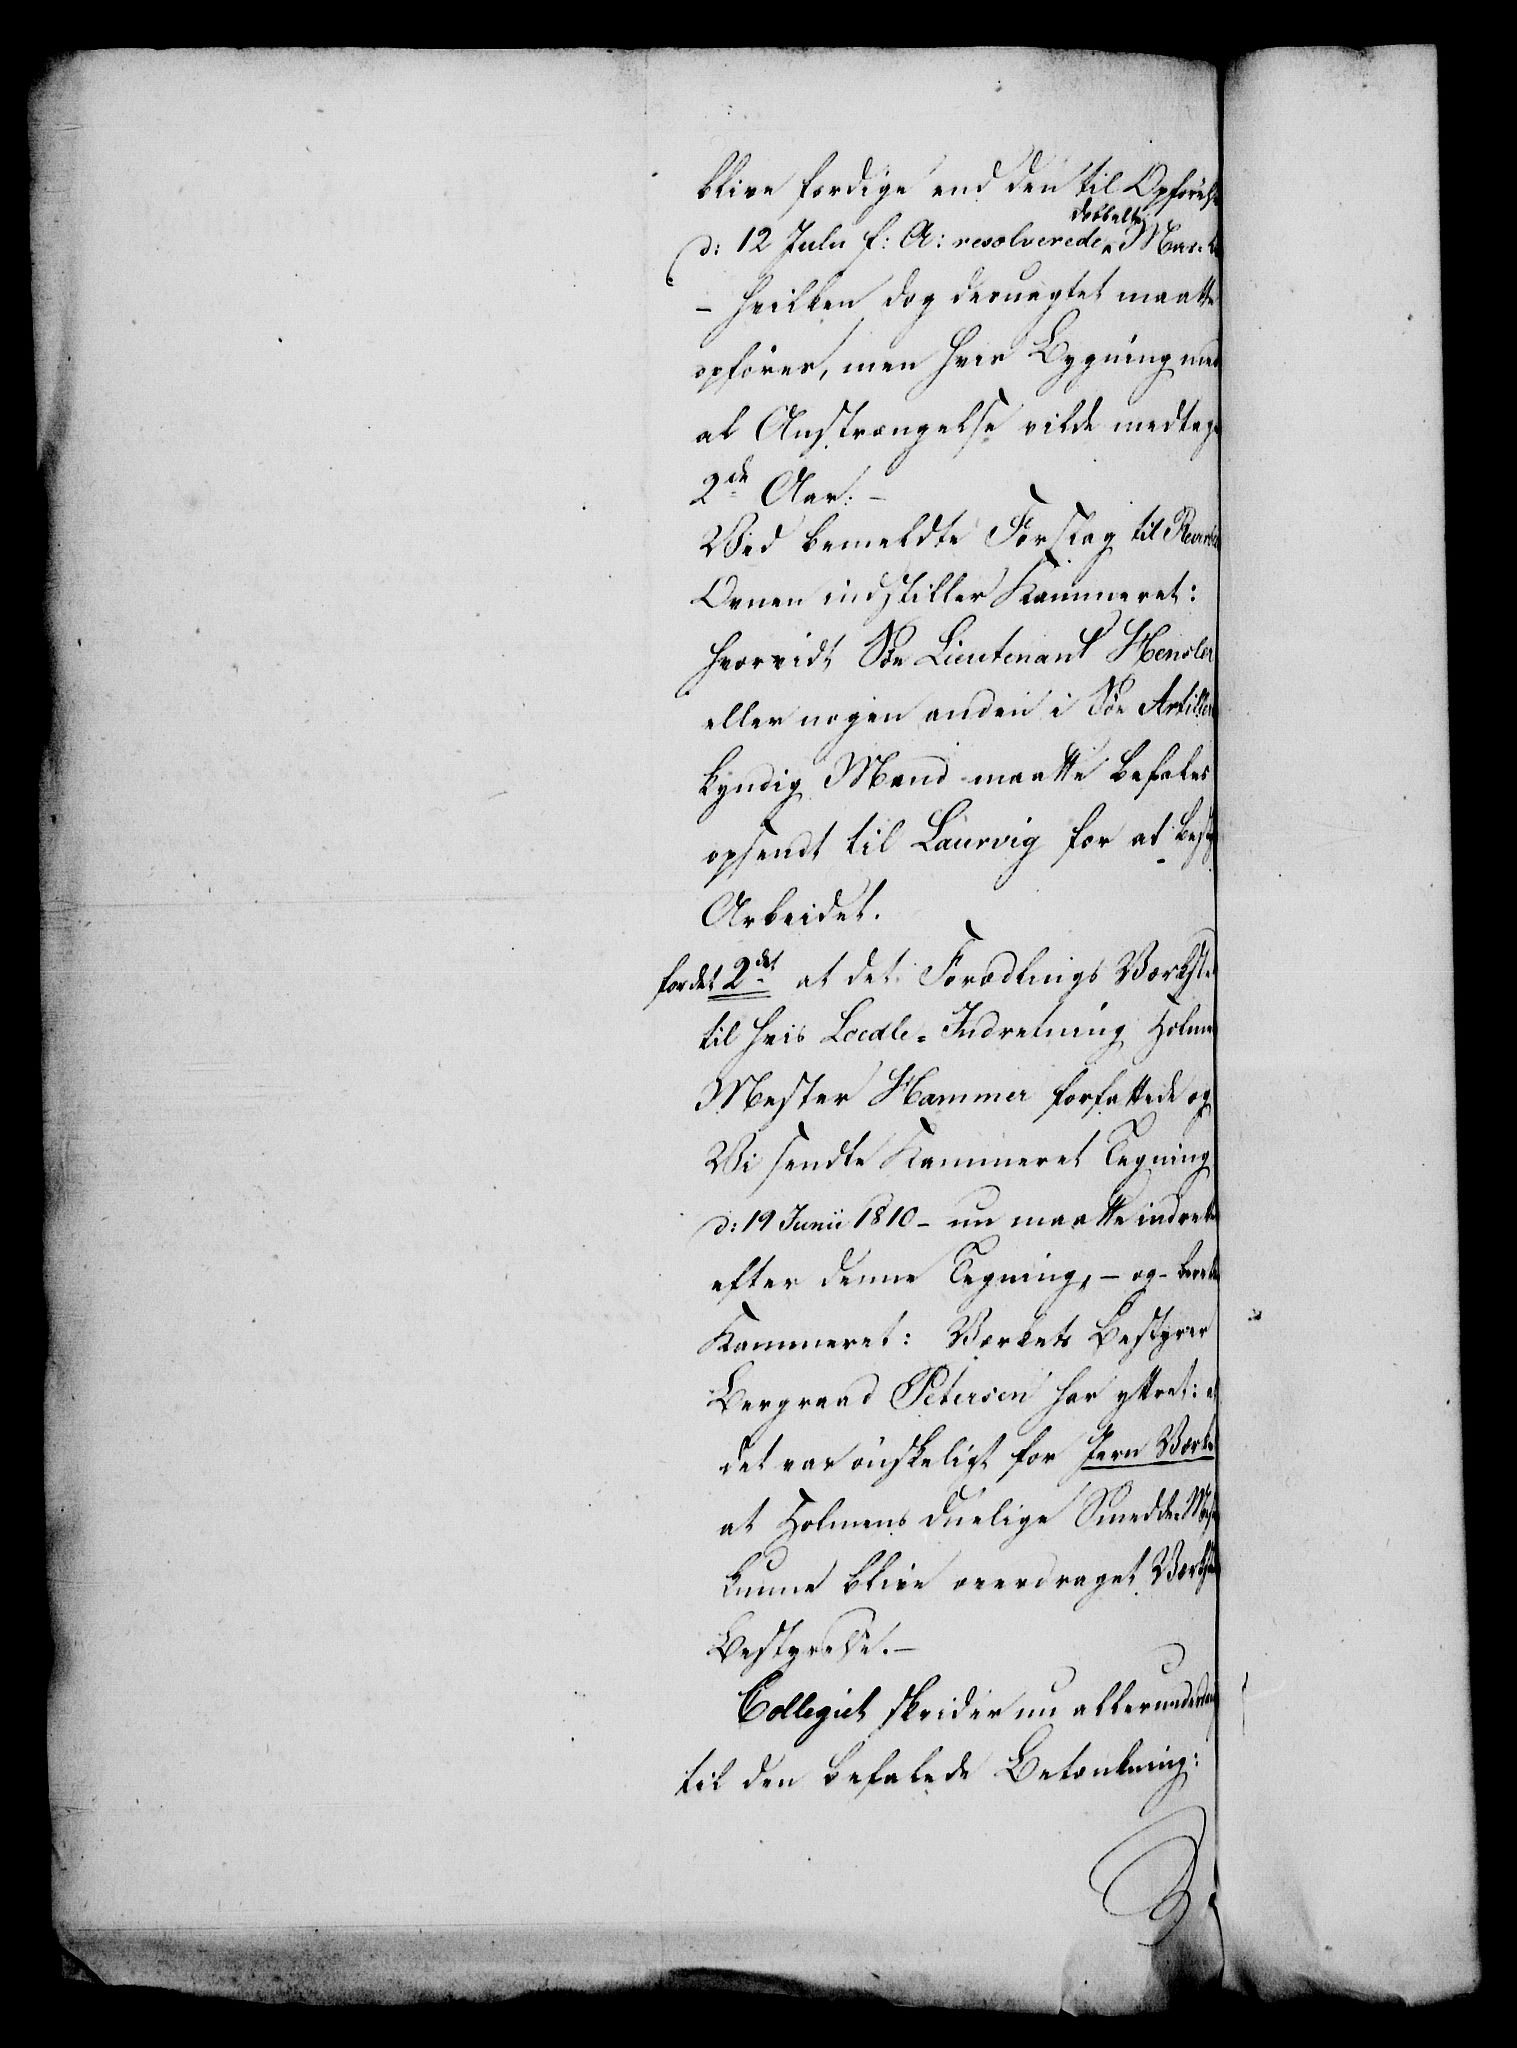 blive færdige end den til Opførelse
d: 12 Julii f: A: resolverede dobbelte Mas
– hvilken dog deruagtet maatte
opføres, men hvis Bygning med
al Anstrængelse vilde medtage
2de Aar: –
Ved bemeldte Forslag til Reverber
Ovnen indstiller Kammeret:
hvorvidt Søe Lieutenant Hensler
eller nogen anden i Søe Artillerie
kyndig Mand maatte befales
opsendt til Laurvig for at besty
Arbeidet.
for det 2det at det Forædlings Værksted
til hvis Locale-Indretning Holmens
Mester Hammer forfattede og
Vi sendte Kammeret Tegning
d: 19 Junii 1810 – nu maatte indrettes
efter denne Tegning, – og beretter
Kammeret: Værkets Bestyrer
Bergraad Petersen har yttret: at
det var ønskeligt for Jern Værket
at Holmens duelige Smedde-Mester
kunne blive overdraget Værkstedets
Bestyrelse. –
Collegiet skrider nu allerunderdanigst
til den befalede Betænkning: